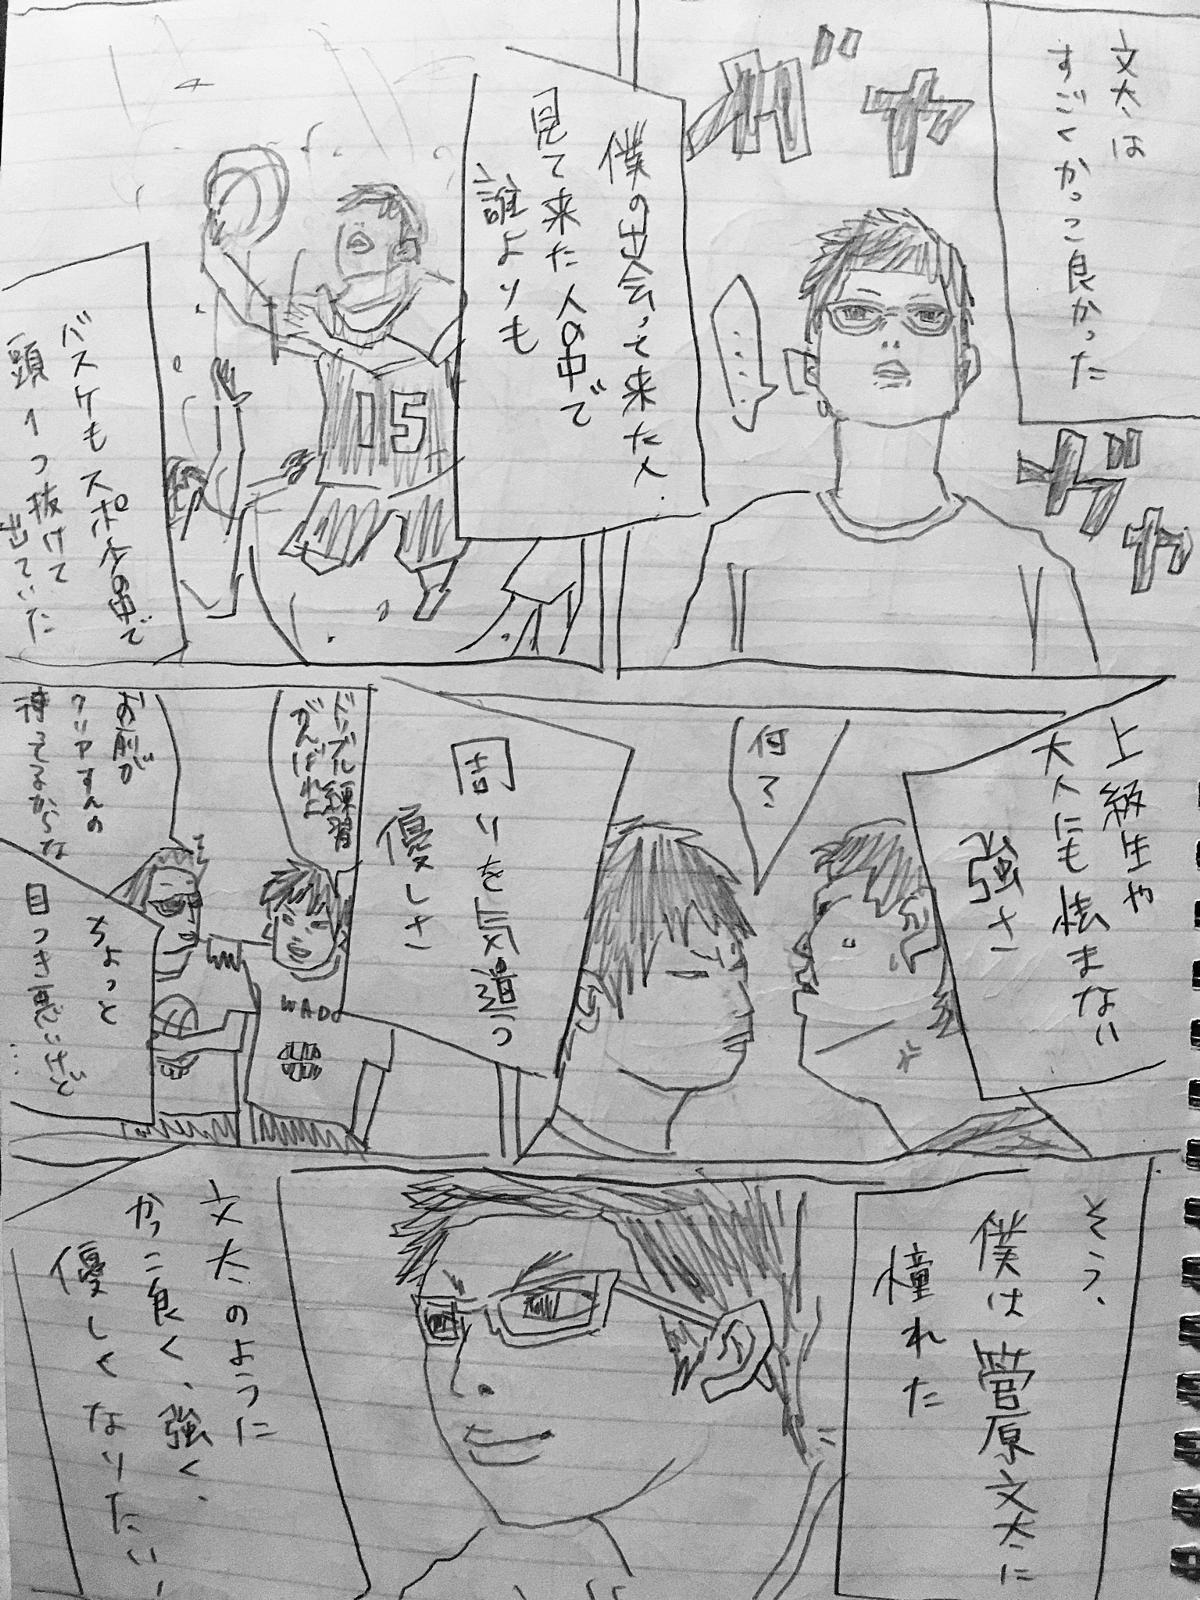 文太は
すごくかっこ良かった
ザ
ガ
ザ
ザ
……
僕の出会って来た人
見て来た人の中で
誰よりも
15
バスケもスポ少の中で
頭1つ抜けて
出ていた
上級生や
大人にも怯まない
強さ
何?
周りを気遣う
優しさ
ドリブル練習
がんばれよ
お前が
クリアすんの
待ってるからな
ちょっと
目つき悪いけど…
WADO
そう、
僕は菅原文太に
憧れた
文太のように
かっこ良く、強く、
優しくなりたい!